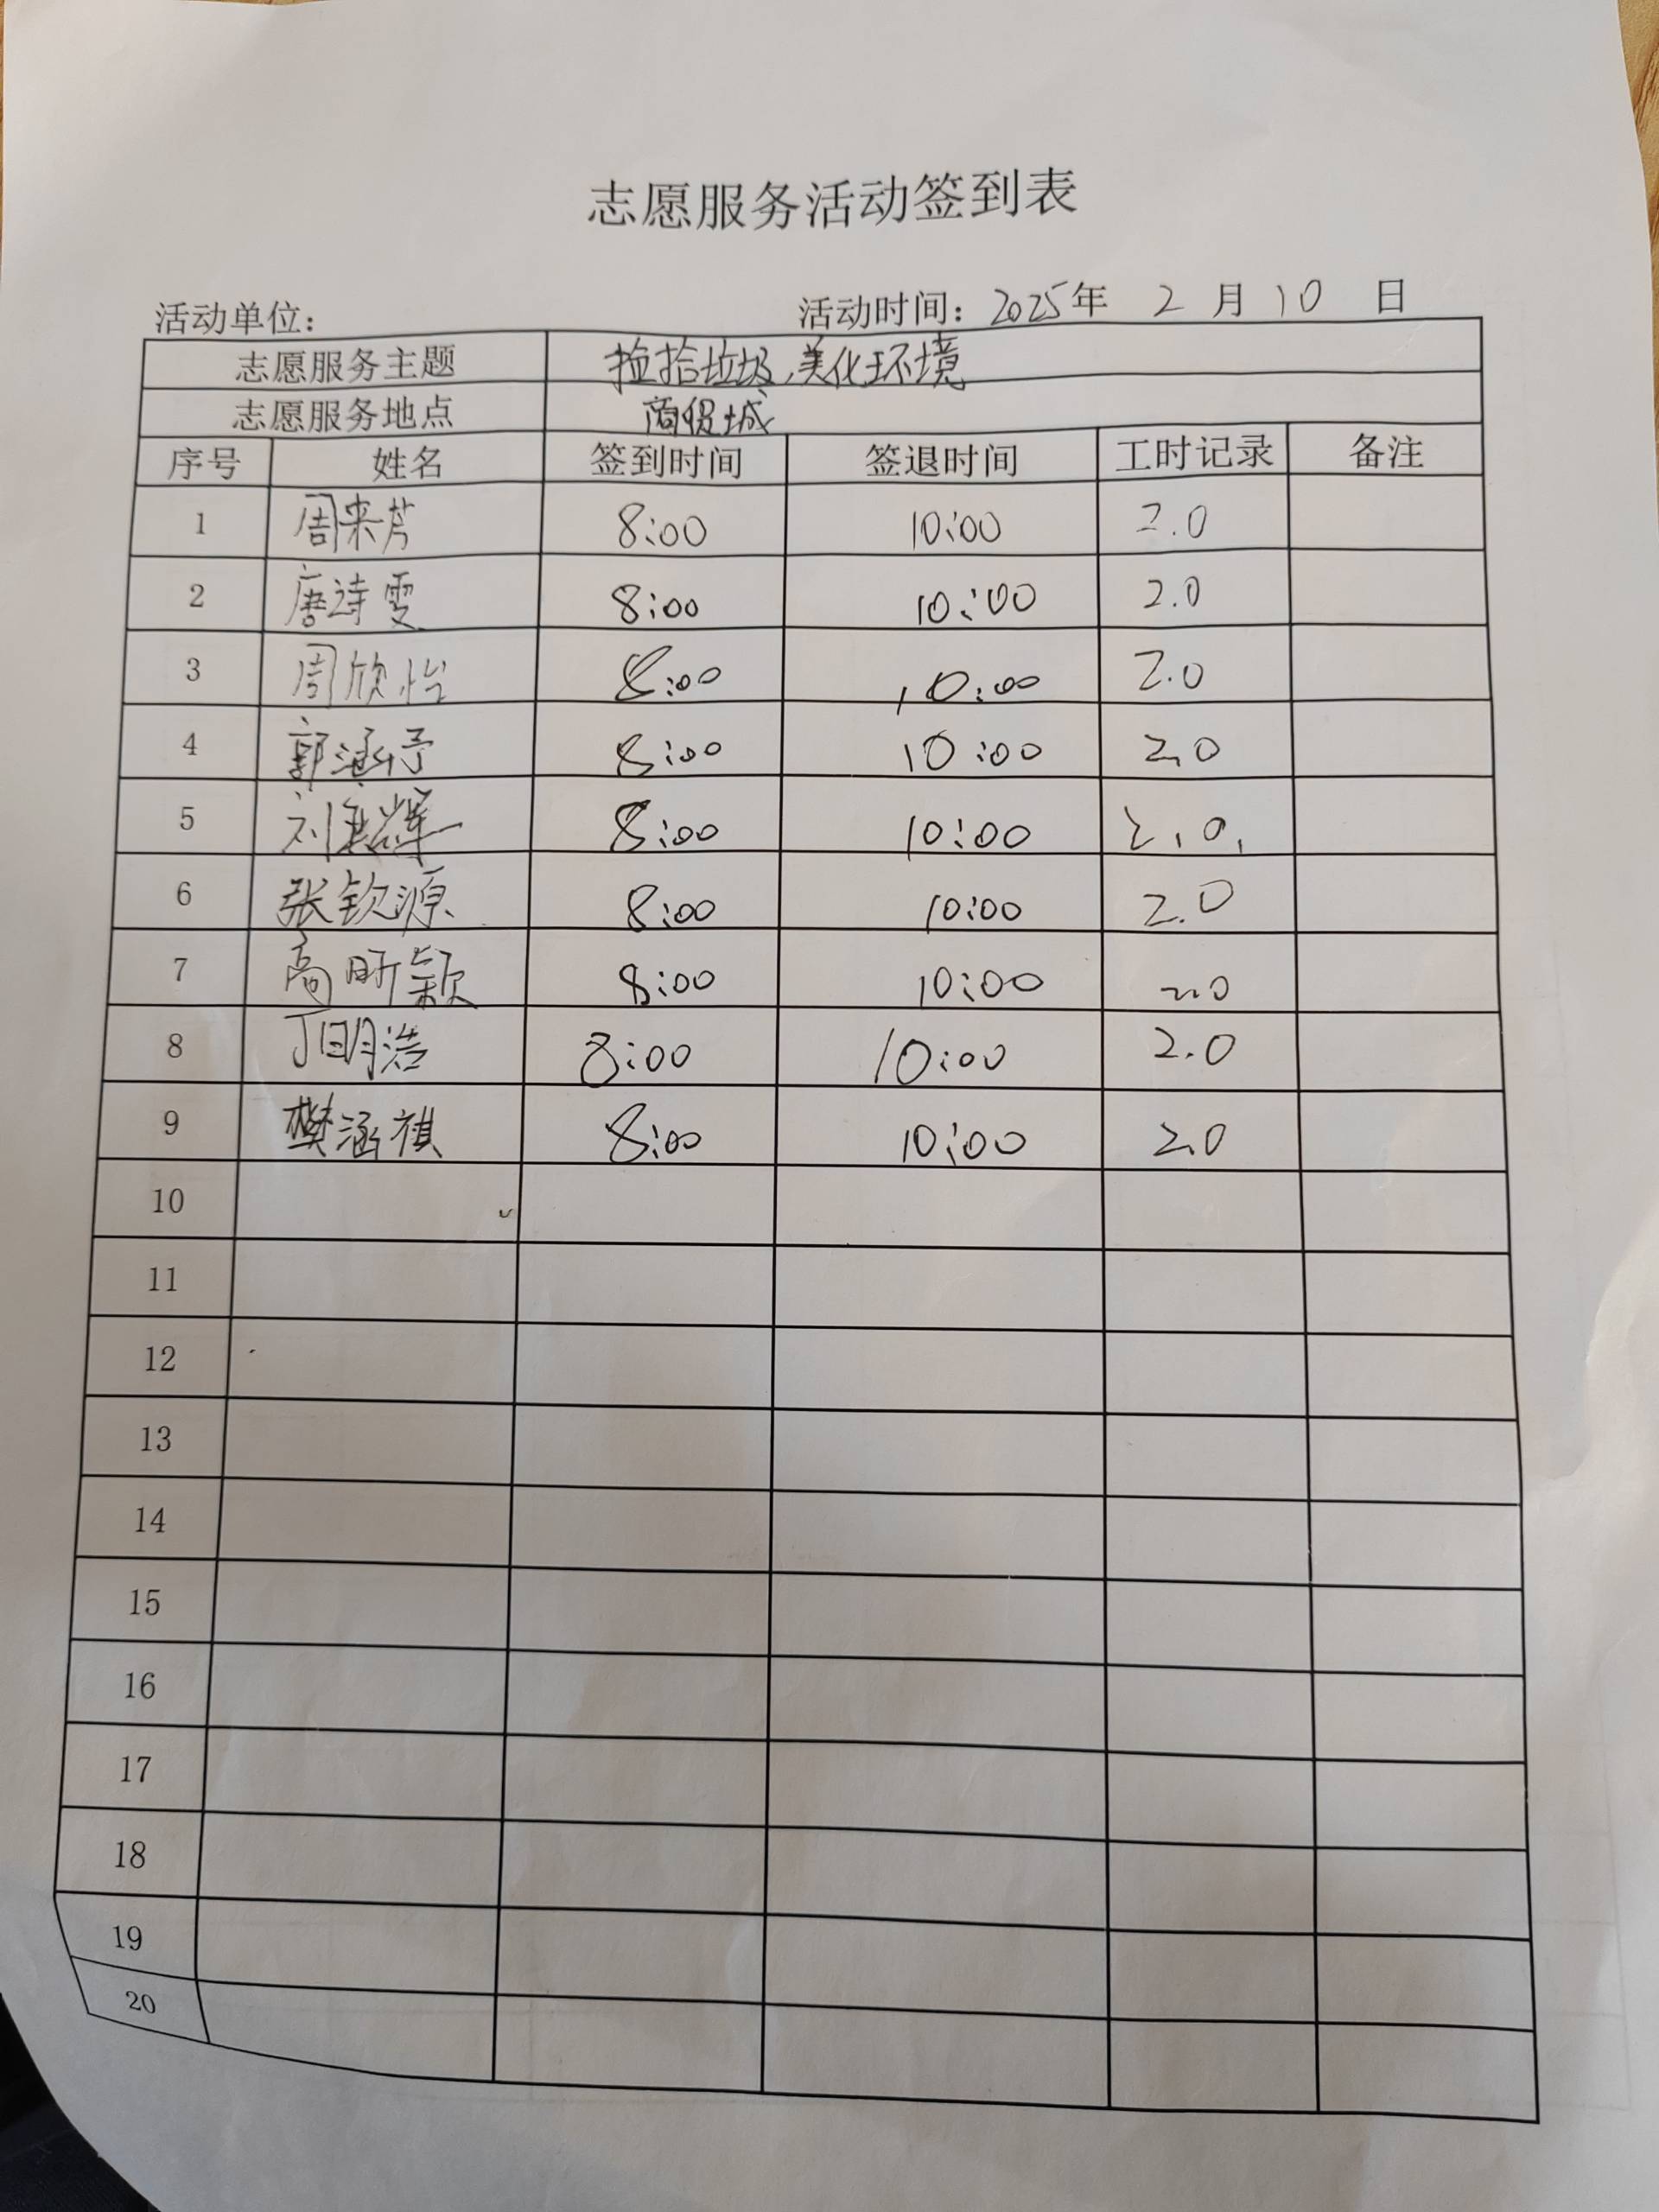 志愿服务活动签到表
活动单位： 活动时间：2025年 2 月 10 日
志愿服务主题 捡拾垃圾，美化环境
志愿服务地点 商贸城
序号 姓名 签到时间 签退时间 工时记录 备注
1 周来芳 8:00 10:00 2.0
2 唐诗雯 8:00 10:00 2.0
3 周欣怡 8:00 10:00 2.0
4 郭涵予 8:00 10:00 2.0
5 刘 辉 8:00 10:00 2.0.
6 张钦源 8:00 10:00 2.0
7 高昕颖 8:00 10:00 2.0
8 丁明浩 8:00 10:00 2.0
9 樊涵祺 8:00 10:00 2.0
10
11
12
13
14
15
16
17
18
19
20